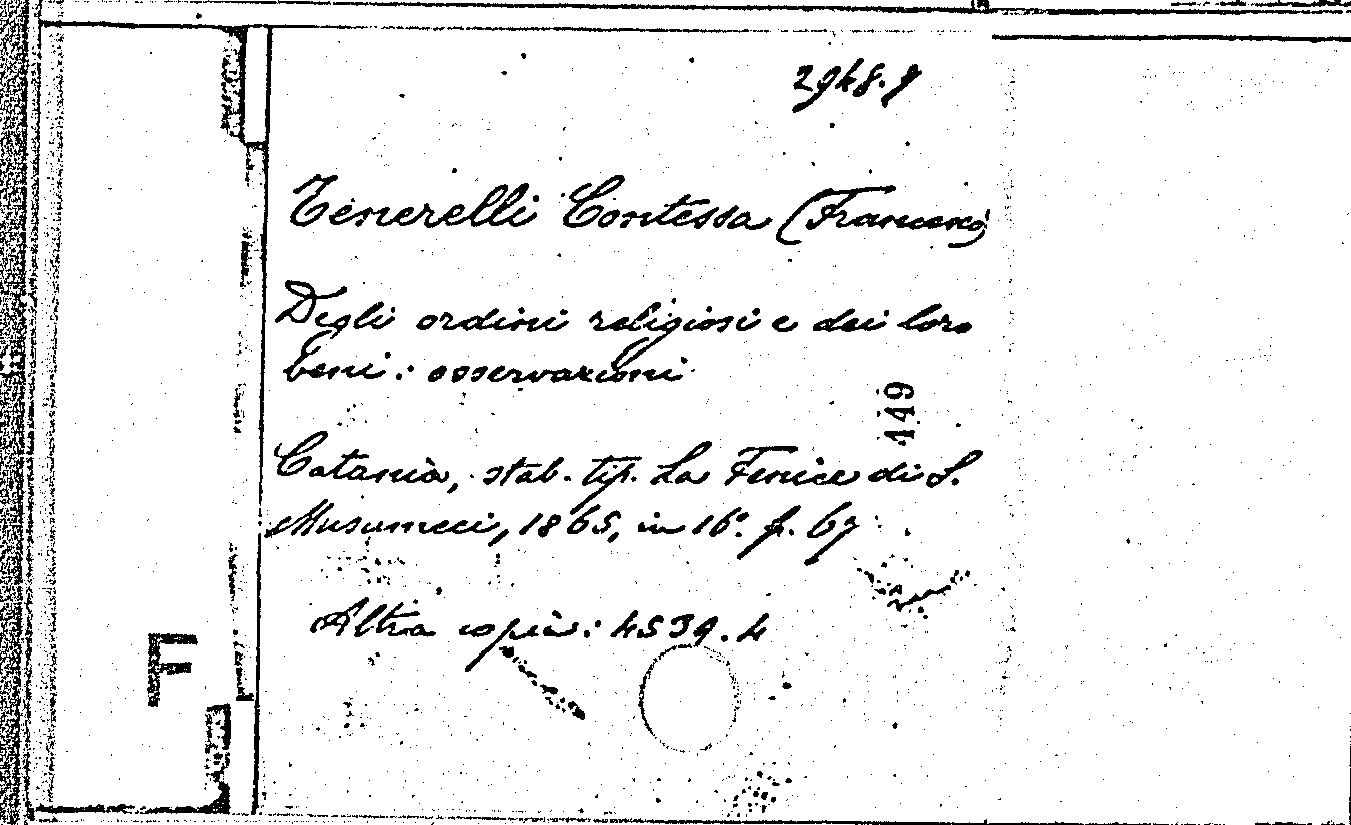 2948.9
Tenerelli Contessa (Francesco)
Degli ordini religiosi e dei loro
beni: osservazioni
149
Catania, stab. tip. La Fenice di S.
Musumeci, 1865, in 16º. p. 67
Altra copia: 4539.4
F